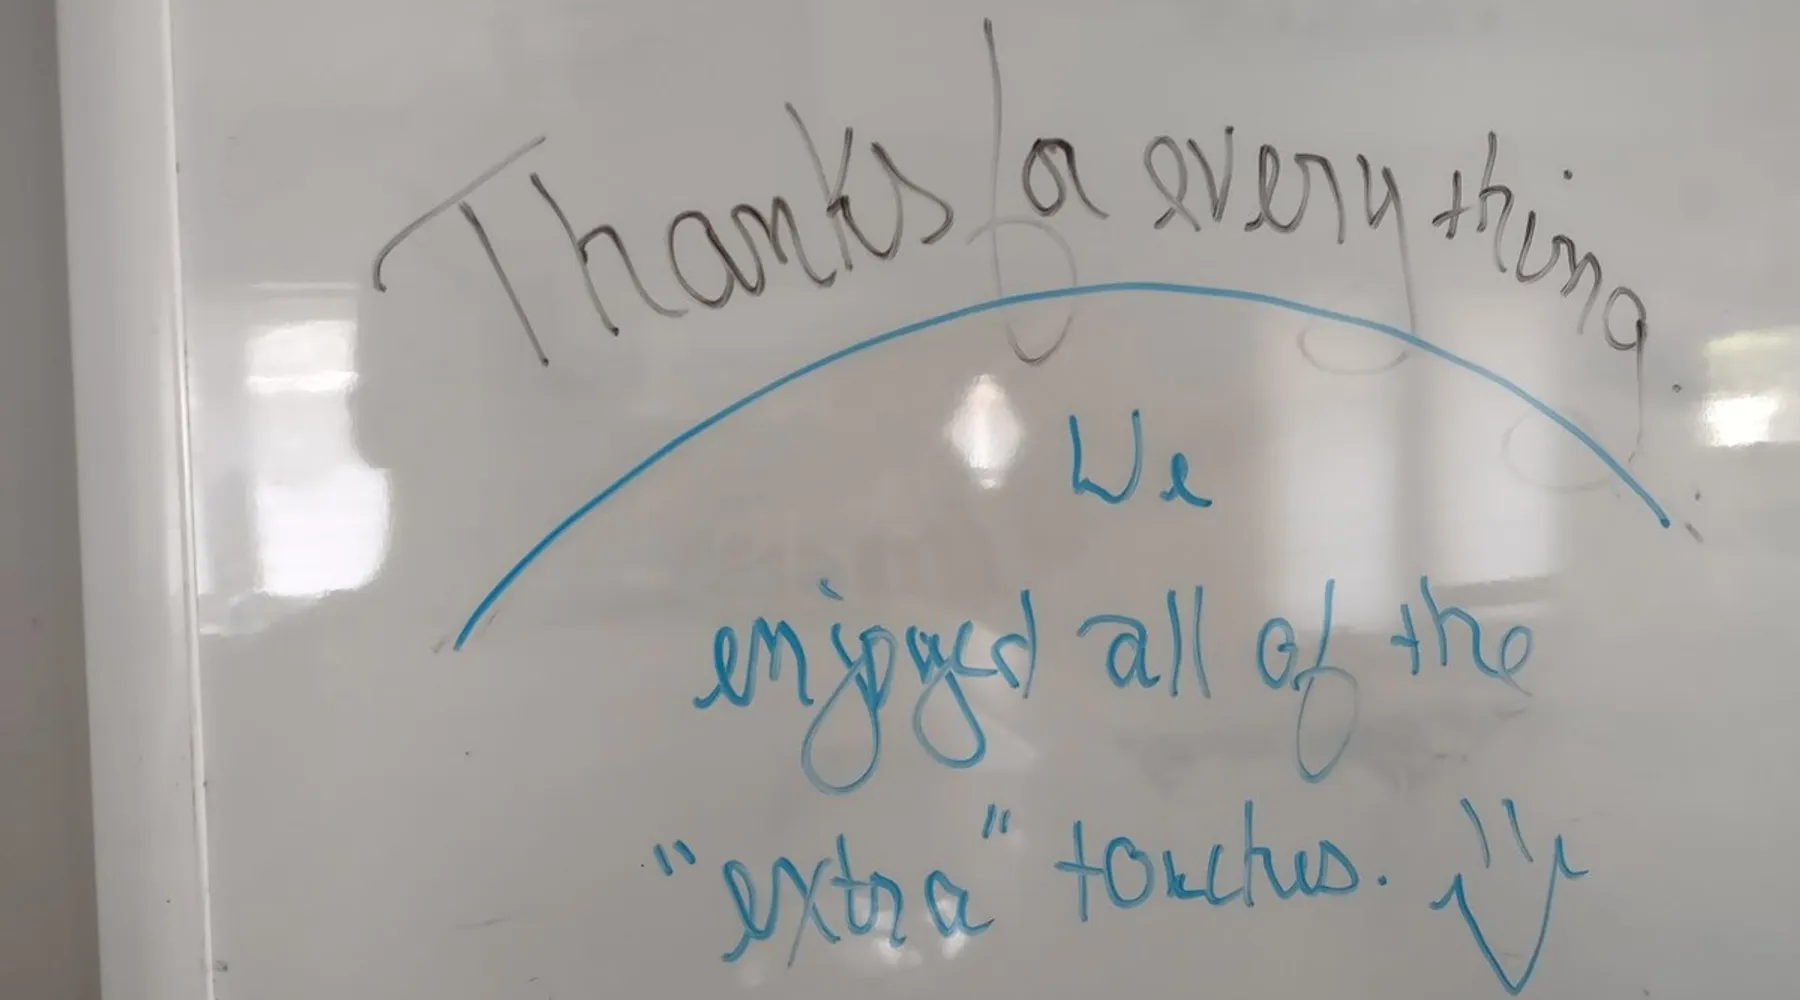 Thanks for everything.
We
enjoyed all of the
"extra" touches.